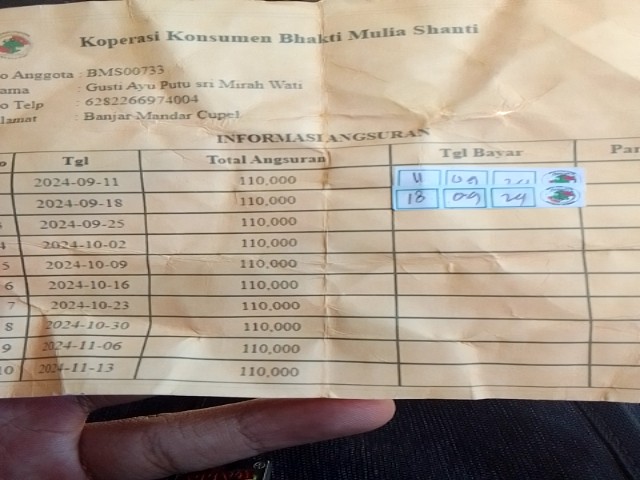 Koperasi Konsumen Bhakti Mulia Shanti
o Anggota : BMS00733
ama : Gusti Ayu Putu sri Mirah Wati
o Telp : 6282266974004
lamat : Banjar Mandar Cupel
INFORMASI ANGSURAN
o Tgl Total Angsuran Tgl Bayar Par
2024-09-11 110,000 11 09
2024-09-18 110,000 18 09 24
3 2024-09-25 110,000
4 2024-10-02 110,000
5 2024-10-09 110,000
6 2024-10-16 110,000
7 2024-10-23 110,000
8 2024-10-30 110,000
9 2024-11-06 110,000
10 2024-11-13 110,000